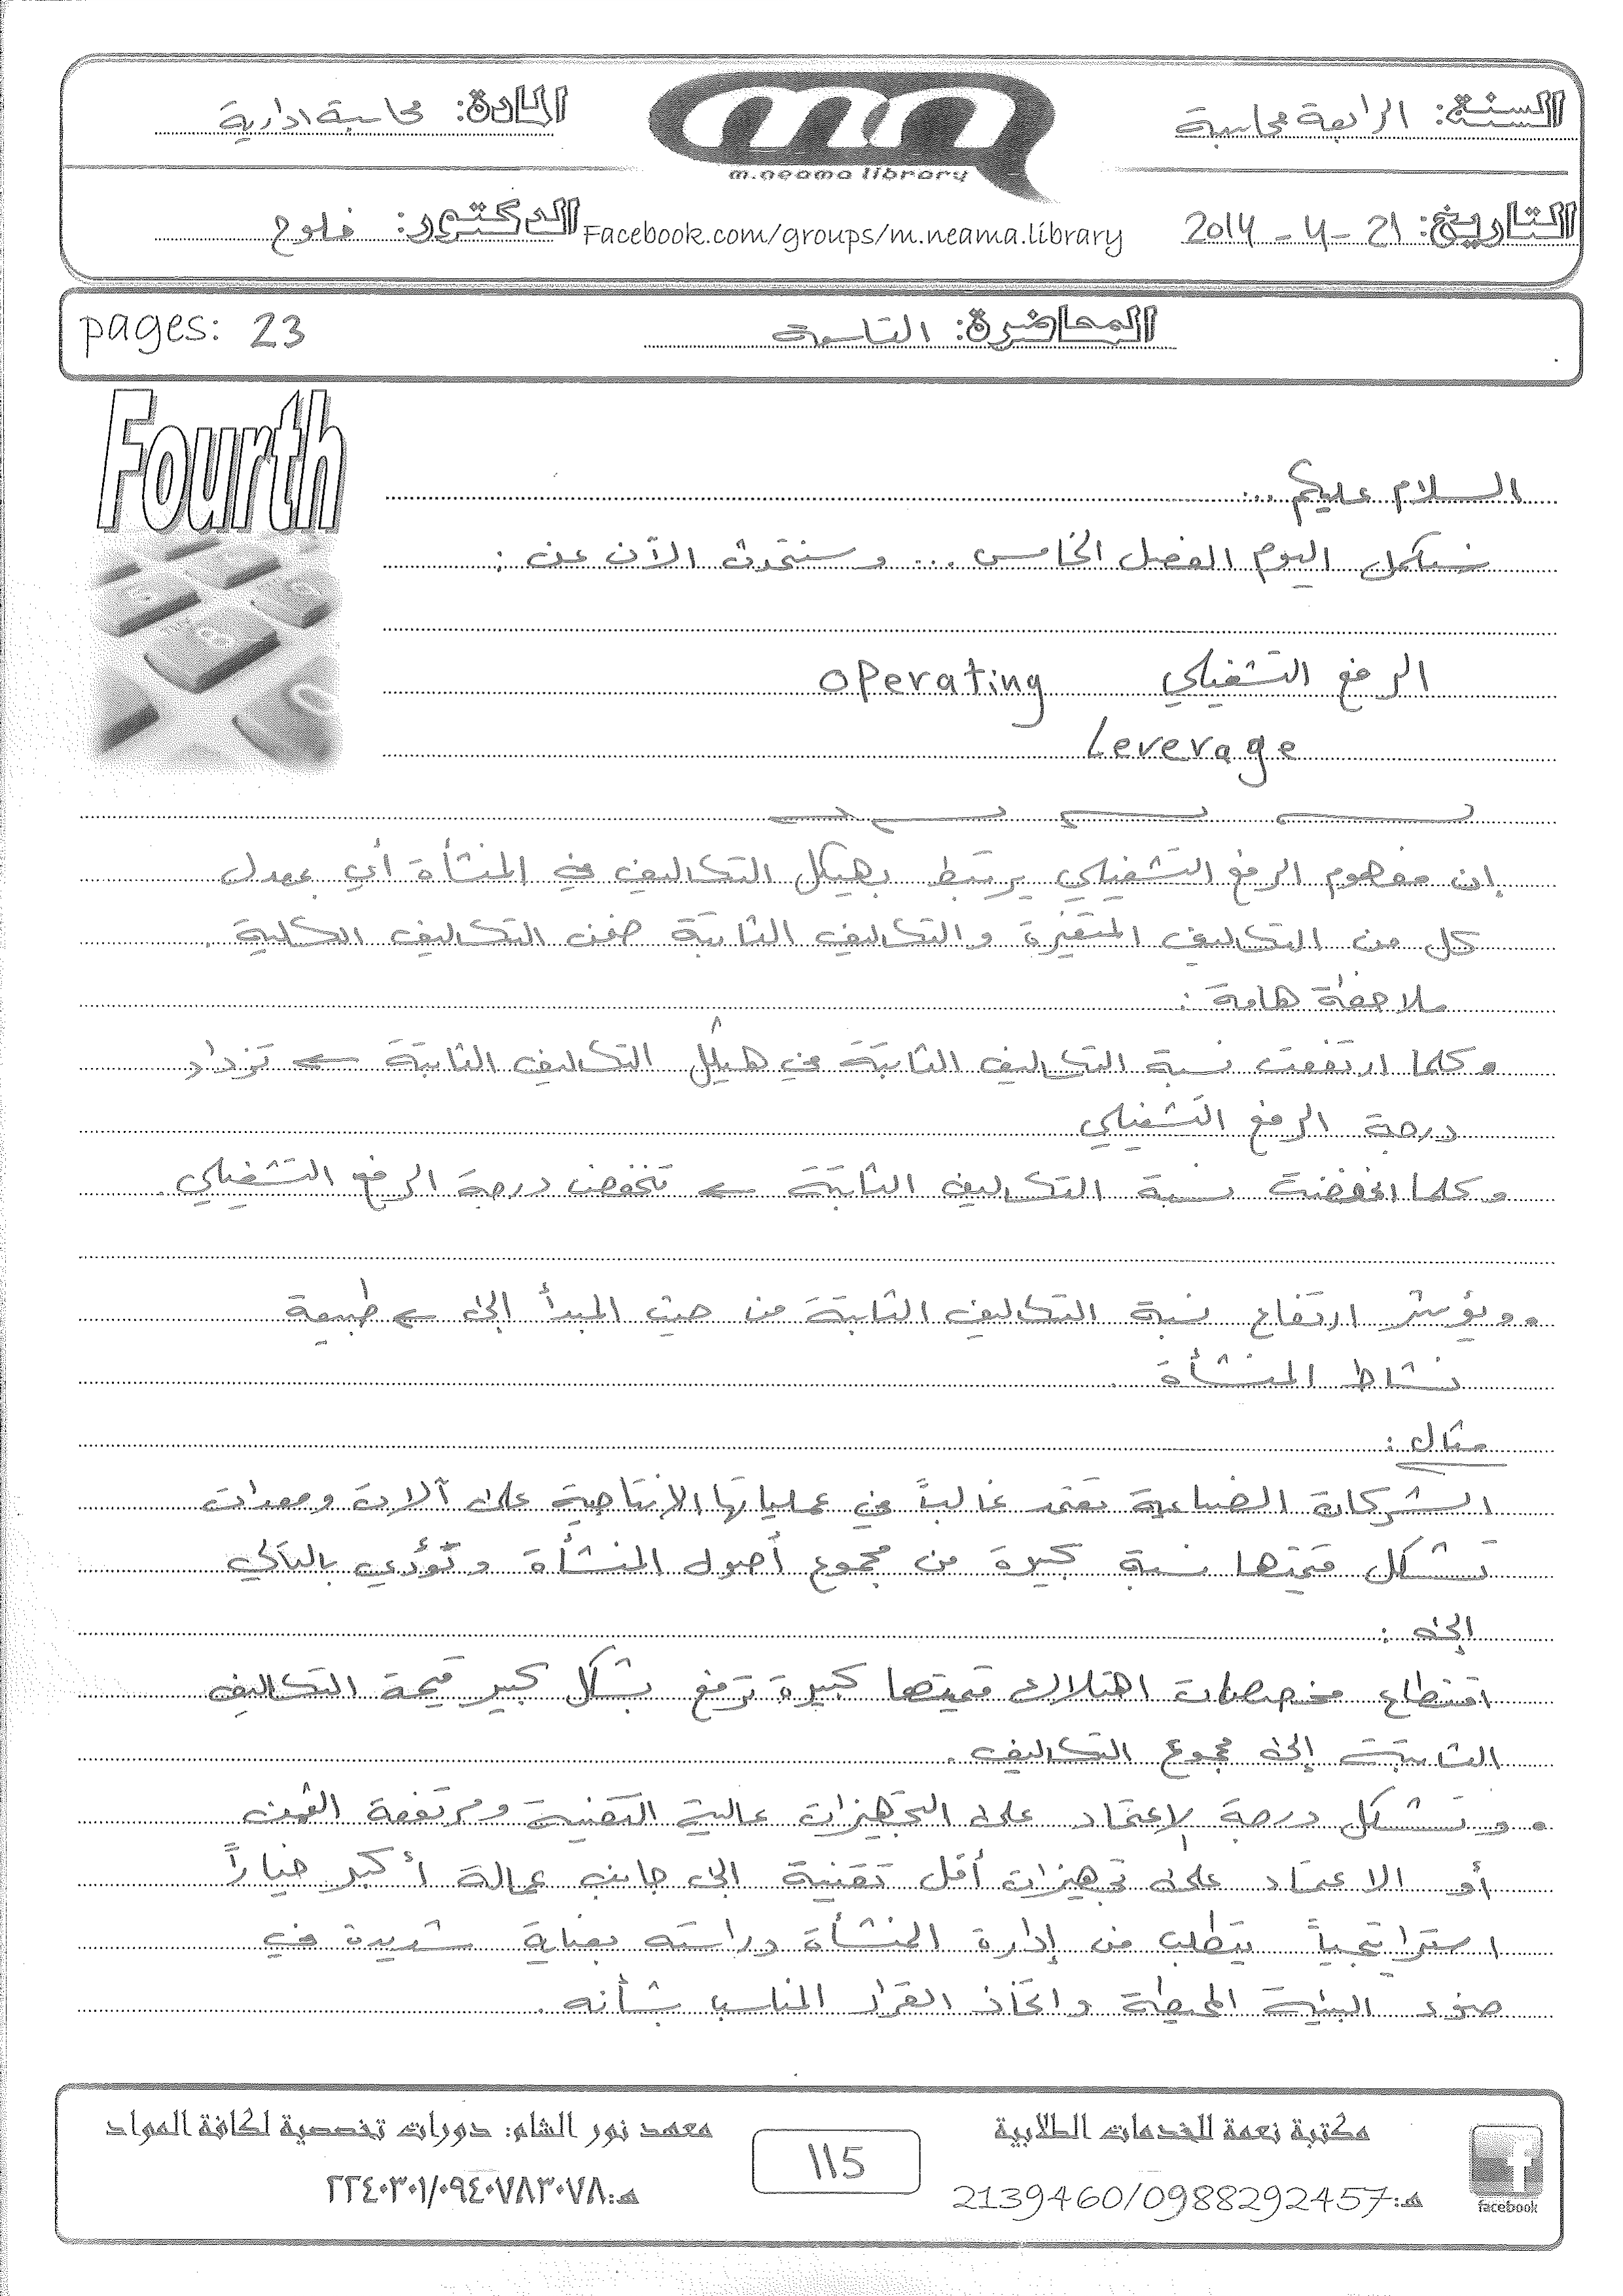 السنة: الرابعة محاسبة
المادة: محاسبة ادارية
m.neama library
التاريخ: 21 - 4 - 2014
Facebook.com/groups/m.neama.library
الدكتور: فلوح
المحاضرة: التاسعة
pages: 23
Fourth
السلام عليكم ...
نستكمل اليوم الفصل الخامس ... وسنتحدث الآن عن :
الرفع التشغيلي operating
Leverage
إن مفهوم الرفع التشغيلي يرتبط بهيكل التكاليف في المنشأة أي بمعدل
كل من التكاليف المتغيرة والتكاليف الثابتة ضمن التكاليف الكلية .
ملاحظة هامة :
وكلما ارتفعت نسبة التكاليف الثابتة في هيكل التكاليف الثابتة ← تزداد
درجة الرفع التشغيلي
وكلما انخفضت نسبة التكاليف الثابتة ← تنخفض درجة الرفع التشغيلي .
• ويؤشر ارتفاع نسبة التكاليف الثابتة من حيث المبدأ إلى ← طبيعة
نشاط المنشأة .
مثال :
الشركات الصناعية تعتمد غالباً في عملياتها الإنتاجية على آلات ومعدات
تشكل قيمتها نسبة كبيرة من مجموع أصول المنشأة وتؤدي بالتالي
إلى :
اقتطاع مخصصات اهتلاك قيمتها كبيرة ترفع بشكل كبير قيمة التكاليف
الثابتة إلى مجموع التكاليف .
• وتشكل درجة الاعتماد على التجهيزات عالية التقنية ومرتفعة الثمن
أو الاعتماد على تجهيزات أقل تقنية الى جانب عمالة أكبر خياراً
استراتيجياً يتطلب من إدارة المنشأة دراسته بعناية شديدة في
ضوء البيئة المحيطة واتخاذ القرار المناسب بشأنه .
مكتبة نعمة للخدمات الطلابية
هـ: 2139460/0988292457
facebook
115
معهد نور الشام: دورات تخصصية لكافة المواد
هـ: ٢٢٤٠٣٠١/٠٩٤٠٧٨٣٠٧٨